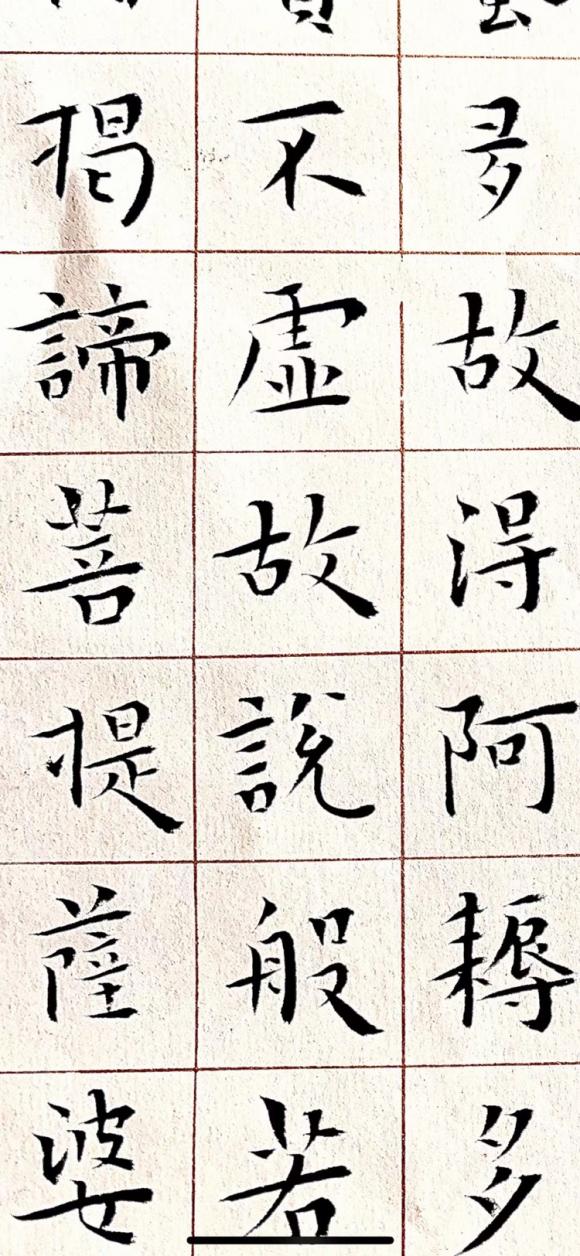 多故得阿耨多
不虛故說般若
揭諦菩提薩婆